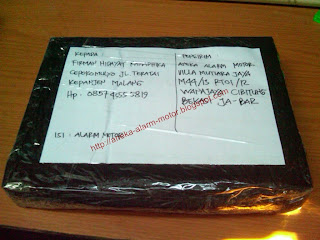 KEPADA
FIRMAN HIDAYAT
CEPOKOMULYO JL. TERATAI
KEPANJEN MALANG
Hp : 0857 4555 5819
ISI : ALARM MOTOR
PENGIRIM
ANEKA ALARM MOTOR
VILLA MUTIARA JAYA
M44/15 RT01/12
WANAJAYA CIBITUNG
BEKASI JA-BAR
http://aneka-alarm-motor.blogspot.com